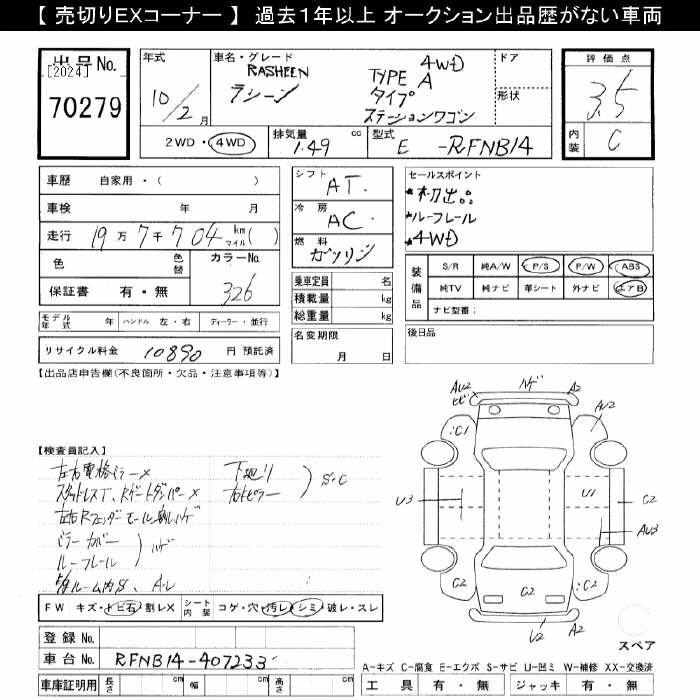 【 売切りEXコーナー 】 過去1年以上 オークション出品歴がない車両
出品No.
[2024]
70279
年式
10/2月
車名・グレード
RASHEEN
ラシーン
4WD
TYPE A
タイプ
ステーションワゴン
ドア
形状
2WD・4WD
排気量 1.49 cc
型式 E -RFNB14
評価点
3.5
内装 C
車歴 自家用・( )
車検 年 月
走行 19万7千704 km マイル( )
色 色替
カラーNo.
326
保証書 有・無
モデル年式 年 ハンドル 左・右 ディーラー・並行
リサイクル料金 10890 円 預託済
シフト AT.
冷房 AC.
燃料 ガソリン
乗車定員 名
積載量 kg
総重量 kg
名変期限
月 日
セールスポイント
*初出品
*ルーフレール
*4WD
装備品
S/R 純A/W P/S P/W ABS
純TV 純ナビ 革シート 外ナビ エアB
ナビ型番:
後日品
【出品店申告欄(不良箇所・欠品・注意事項等)】
【検査員記入】
左右電格ミラー×
スタッドレスT、Rゲートダンパー×
左右Rフェンダーモール割レハゲ
ミラーカバー
ルーフレール
ハゲ
ルーム内S、A-L
下廻り
右Rピラー
S.C
FW キズ・トビ石・割レX
シート内装 コゲ・穴・汚レ・シミ・破レ・スレ
登録No.
車台No. RFNB14-407233
車庫証明用 長さ cm 幅 cm 高さ cm
AU2
ヒビ
ハゲ
A2
A/2
C1
U3
U1
C2
AU3
C2
C2
C2
C2
U2
A2
スペア
A-キズ C-腐食 E-エクボ S-サビ U-凹ミ W-補修 XX-交換済
工具 有・無 ジャッキ 有・無